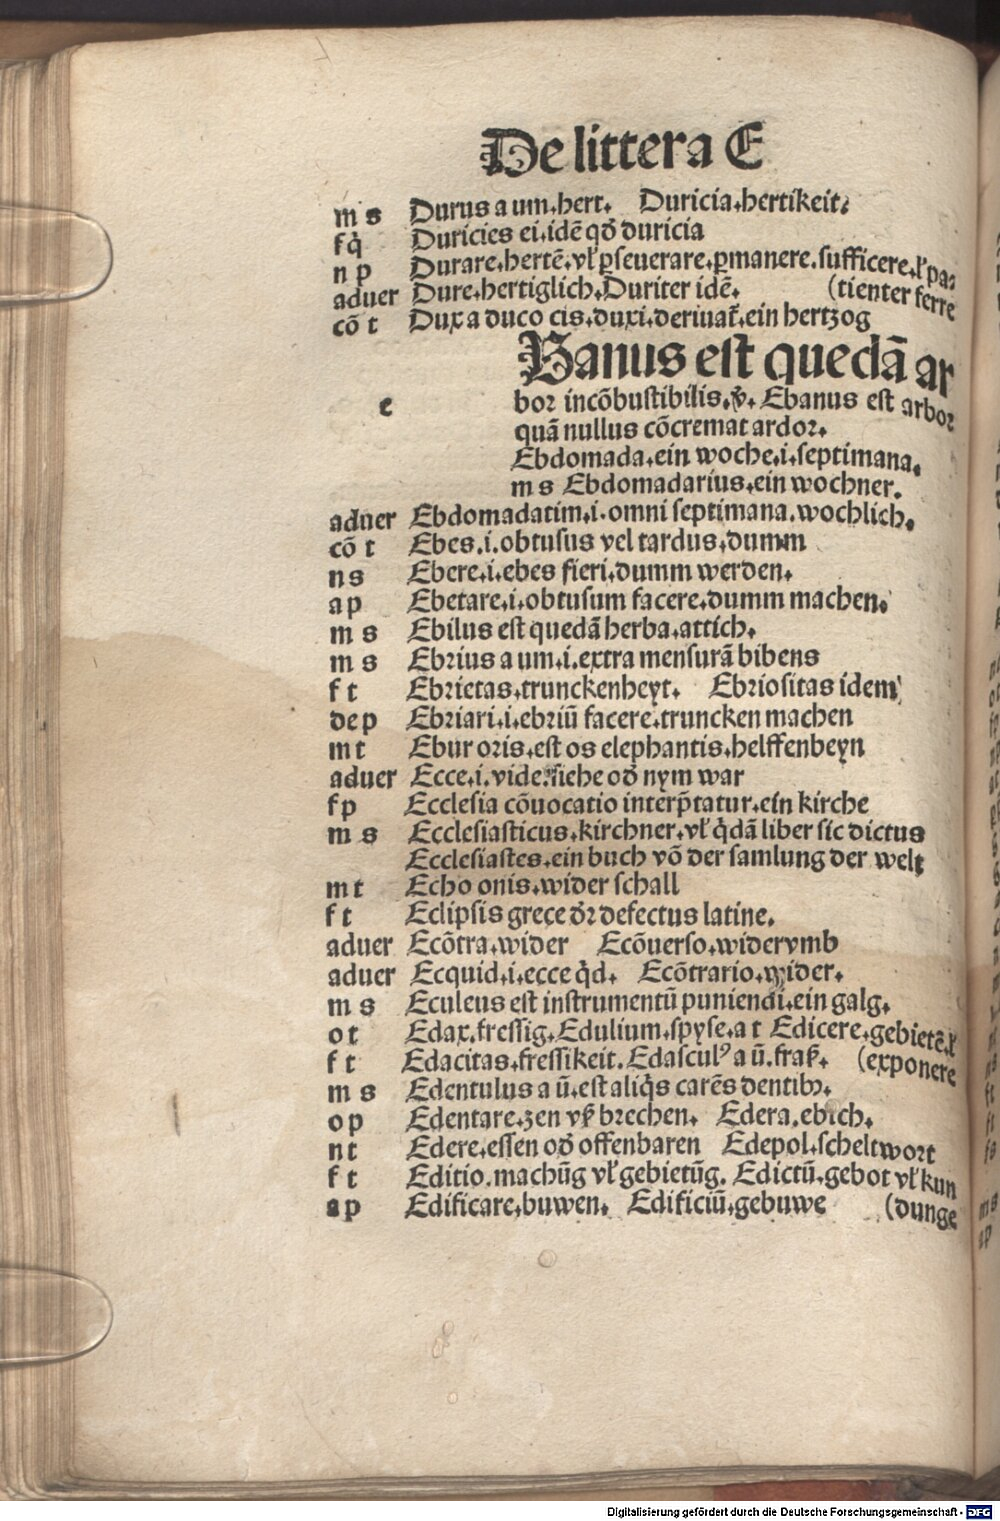 De littera E
m s Durus a um.hert. Duricia.hertikeit.
f q̇ Duricies ei.idē qđ duricia
n p Durare.hertē.vľ ꝑseuerare.ꝑmanere.sufficere.ľ pa⸗
aduer Dure.hertiglich.Duriter idē. (tienter ferre
cō t Dux a duco cis.duxi.deriuat̄.ein hertzog
Banus est quedā ar
e bor incōbustibilis.v̄. Ebanus est arbor
quā nullus cōcremat ardor.
Ebdomada.ein woche.i.septimana.
m s Ebdomadarius.ein wochner.
aduer Ebdomadatim.i.omni septimana.wochlich.
cō t Ebes.i.obtusus vel tardus.dumm
n s Ebere.i.ebes fieri.dumm werden.
a p Ebetare.i.obtusum facere.dumm machen.
m s Ebilus est quedā herba.attich.
m s Ebrius a um.i.extra mensurā bibens
f t Ebrietas.trunckenheyt. Ebriositas idem
de p Ebriari.i.ebriū facere.truncken machen
m t Ebur oris.est os elephantis.helffenbeyn
aduer Ecce.i.vide.siehe ođ nym war
f p Ecclesia cōuocatio interp̄tatur.ein kirche
m s Ecclesiasticus.kirchner.vľ q̇dā liber sic dictus
Ecclesiastes.ein buch vō der samlung der welt
m t Echo onis.wider schall
f t Eclipsis grece đr defectus latine.
aduer Ecōtra.wider Ecōuerso.widerymb
aduer Ecquid.i.ecce q̇d. Ecōtrario.wider.
m s Eculeus est instrumentū puniendi.ein galg.
o t Edax.fressig.Edulium.spyse.a t Edicere.gebietē.ľ
f t Edacitas.fressikeit.Edasculꝰ a ū.fraß. (exponere
m s Edentulus a ū.est aliq̇s carēs dentibꝰ.
o p Edentare.zen vß brechen. Edera.ebich.
n t Edere.essen ođ offenbaren Edepol.scheltwort
f t Editio.machūg vľ gebietūg. Edictū.gebot vľ kun
a p Edificare.buwen. Edificiū.gebuwe (dunge
Digitalisierung gefördert durch die Deutsche Forschungsgemeinschaft - DFG